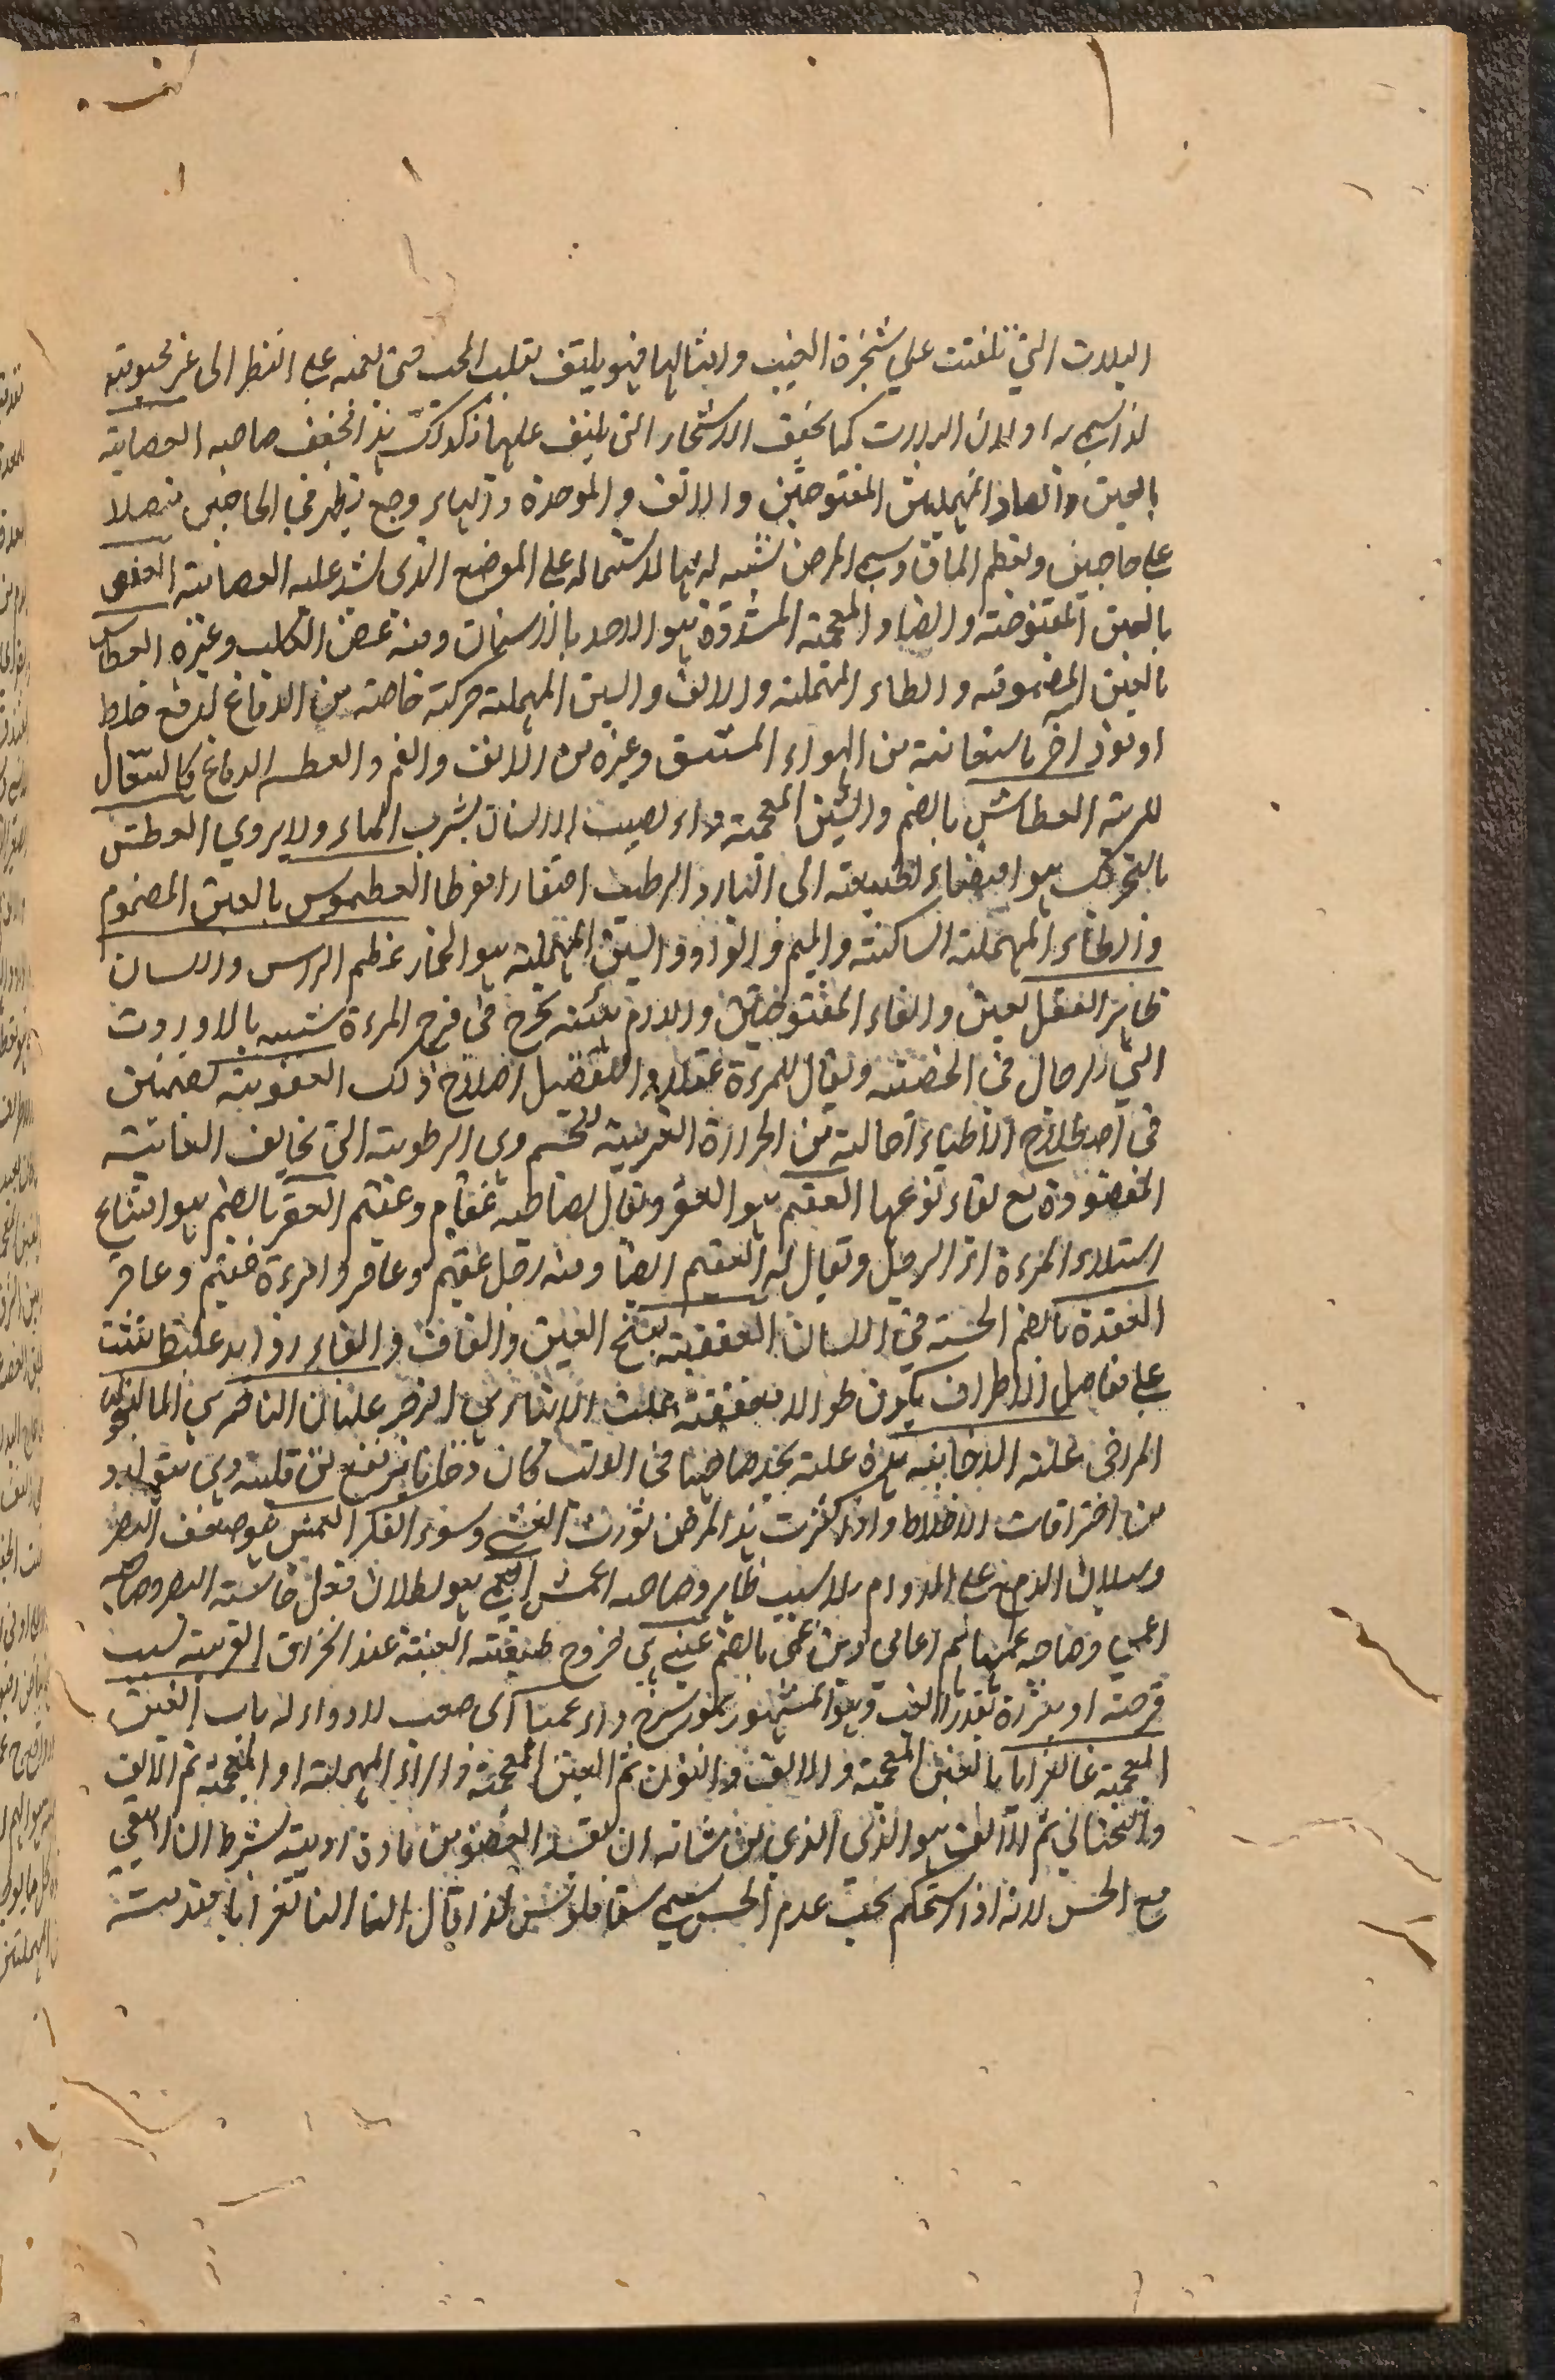 البلاب التي تلتفت علي شجرة العنب وامثالها فهو يلتف بقلب المحب حتى يعميه على النظر الى غير محبوبته
لذا سمي به او لان البلاب كما يخفف الاشجار التي يلتف عليها كذلك هذا يخفف صاحبه العصابة
بالعين والصاد المهملتين المفتوحتين والالف والموحدة والهاء وجع يظهر في الحاجبين متصلا
على حاجبين وبعظم الماق وسمي المرض تشبيه له بها لاشتماله على الموضع الذي تشد عليه العصابة العض
بالعين المفتوحة والضاد المعجمة المشددة هو الاخذ بالاسنان ومنه عض الكلب وغيره العطاس
بالعين المضمومة والطاء المهملة والالف والسين المهملة حركة خاصة من الدماغ لدفع خلط
او موذ اخر باستعانة من الهواء المستنشق وغيره من الانف والفم والعطسه للدماغ كالسعال
للرية العطاش بالضم والشين المعجمة داء يصيب الانسان يشرب الماء ولا يروي العطش
بالتحريك هو اقتضاء الطبيعة الى البارد الرطب افتقارا مفرطا العطموس بالعين المضموم
والطاء المهملة الساكنة والميم والواو والسين المهملة هو الحمار عظيم الراس واللسان
ظاهر العفل بعين والفاء المفتوحتين واللام هيئته تخرج في فرج المرءة شبيه بالادرة
التي للرجال في الخصية ويقال للمرءة عفلاء والتعفيل اصلاح ذلك العفونة بضمتين
في اصطلاح الاطباء احالة من الحرارة الغريبة للجسم ذي الرطوبة التي تخالف الغاية
المقصودة مع بقاء نوعها العقم هو العقر ويقال لصاحبه عقام وعقيم العقر بالضم هو امتناع
استلاء المرءة اثر الرجل ويقال له العقيم ايضا ومنه رجل عقيم وعاقر وامرءة عقيم وعاقر
العقدة بالضم الحبسة في اللسان العقفة بفتح العين والقاف والفاء زوايد غليظة تنبت
على مفاصل الاطراف يكون طوالا معقفة علت الاثنا هي الزحير علبان النافع هي الماليخوليا
المراقي علته الدخانية هذه علة يجد صاحبها في الوقت كان دخانا يرتفع من قلبه وهي يتولد
من احتراقات الاخلاط واذا كثرت هذا المرض تورث الغشي وسوء الفكر العمش هو ضعف البصر
وسيلان الدمع على الدوام بلا سبب ظاهر وصاحبه اعمش العمي هو بطلان فعل حاسة البصر وصاحبه
اعمي وصاحبه عميا هم اعامي ومن عمي بالضم عيني هي خروج طبقة العنبية عند انخراق القرنية بسبب
قرحة او بثرة بقدر العنب وهو المشهور بمورسرج داء عميا اى صعب لا دواء له باب الغين
المعجمة غانغرايا بالغين المعجمة والالف والنون ثم الغين المعجمة والراء المهملة او المعجمة ثم الالف
والتحتاني ثم الالف هو الذي الذي من شانه ان يفسد العضو من مادة ردية بشرط ان البقي
مع الحس لانه اذا استحكم بحيث عدم الحس سمي سقاقلوس لذا قال الفا الغانغرايا مقدمة